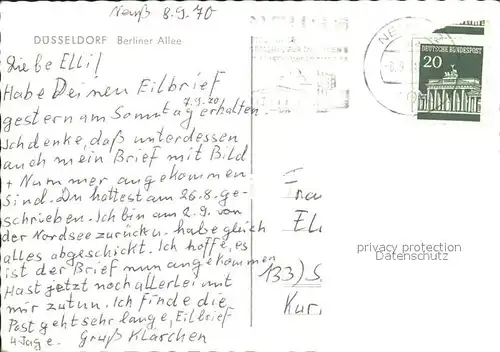 Neuß 8.9.70
DÜSSELDORF Berliner Allee
Liebe Elli!
Habe Deinen Eilbrief
7.9.70
gestern am Sonntag erhalten
Ich denke, daß unterdessen
auch mein Brief mit Bild
+ Nummer angekommen
Sind. Du hattest am 26.8. ge-
schrieben. Ich bin am 2.9. von
der Nordsee zurück u. habe gleich
alles abgeschickt. Ich hoffe, es
ist der Brief nun angekommen
Hast jetzt noch allerlei mit
mir zutun. Ich finde die
Post geht sehr lange, Eilbrief
4 Tage. Gruß Klärchen
DEUTSCHE BUNDESPOST
20
Fra
El
133) S
Kur
privacy protection
Datenschutz